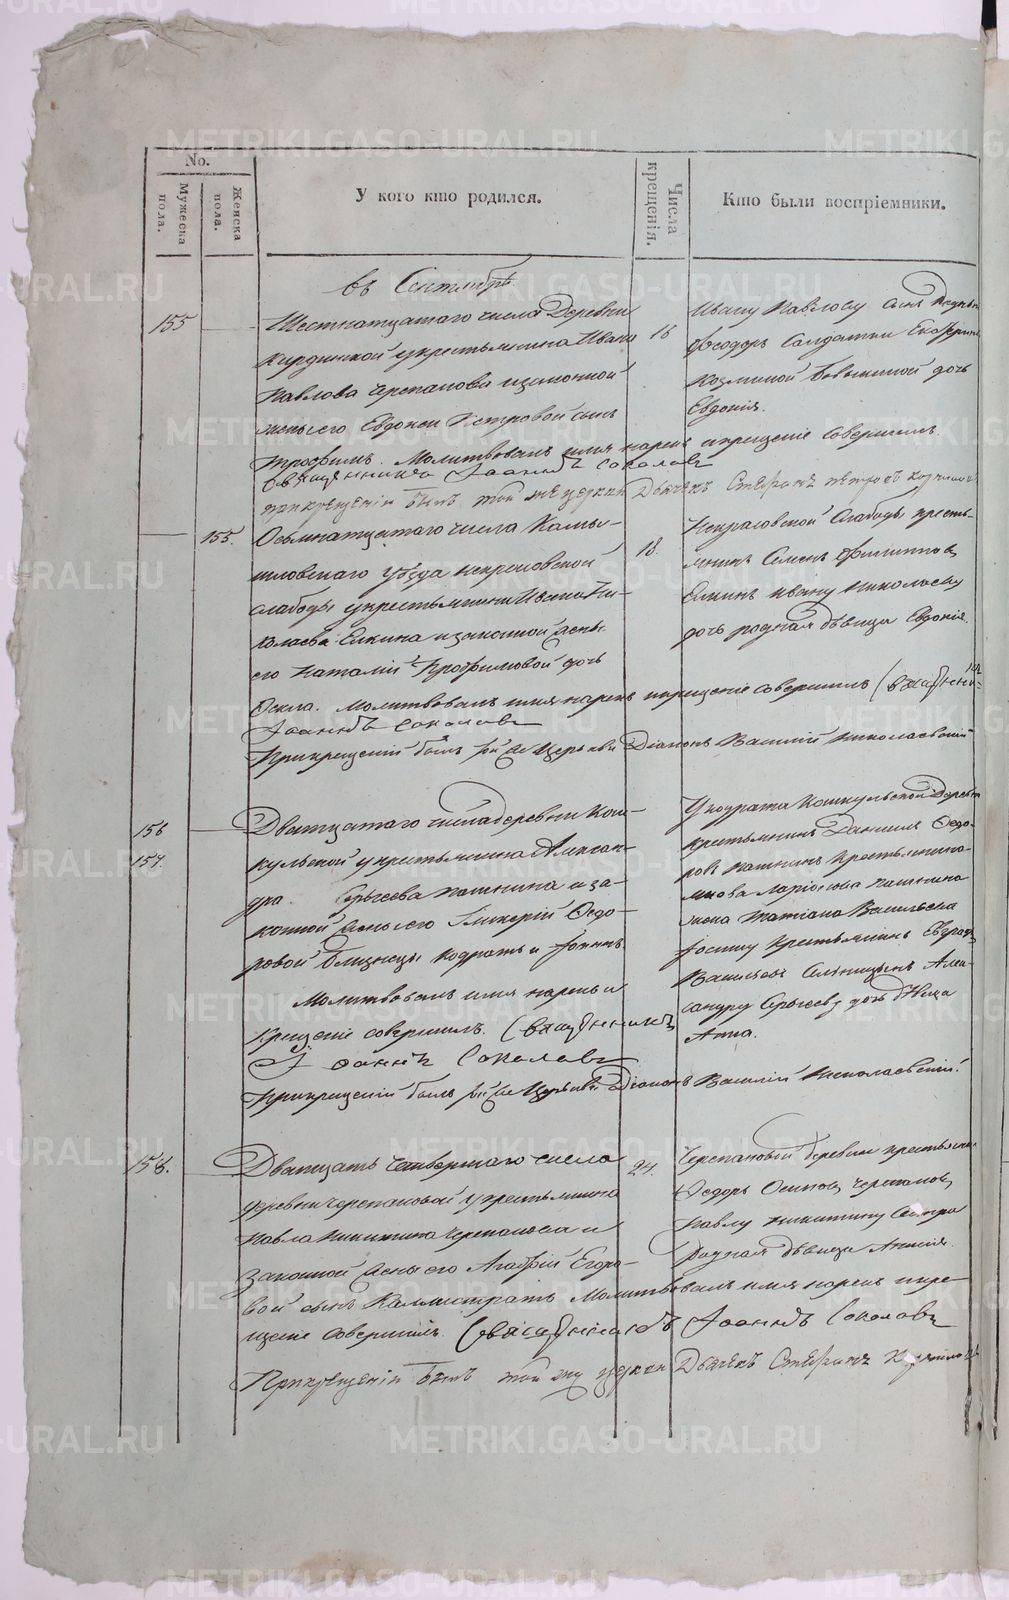 METRIKI.GASO-URAL.RU
No.
Мужеска пола.
Женска пола.
У кого кто родился.
Числа крещенія.
Кто были воспріемники.
въ Сентябрѣ
155
Шестнатцатаго числа Деревни
у крестьянина Ивана
Павлова Черепанова изаконной
жены его Евдокеи Петровой сынъ
Трофимъ. Молитвовалъ имя нарекъ икрещеніе совершилъ
священникъ Іоаннъ Соколовъ
прикрещеніи былъ той же церкви Дьячекъ Стефанъ
16
Ивану Павлову сынъ
Феодоръ Солдатки
Козминой дочь
Евдокія.
155.
Осьмнатцатаго числа Камы-
шловскаго уѣзда Некрасовской
слабоды укрестьянина Ивана Ни-
колаева Елкина изаконной жены
его Наталіи Трофимовой дочь
Фекла. Молитвовалъ имя нарекъ икрещеніе совершилъ священникъ
Іоаннъ Соколовъ
Прикрещеніи былъ той же Церкви Діаконъ Василій Николаевскій
18.
Некрасовской слабоды кресть-
янинъ Семенъ Филипповъ
Елкинъ Ивану Николаеву
дочь родная дѣвица Евдокія.
156
157.
Дватцатаго числа деревни Кош-
кульской укрестьянина Алексан-
дра Сергѣева Пашнина иза-
конной жены его Гликеріи Федо-
ровой близнецы Кодратъ и Іоаннъ
Молитвовалъ имя нарекъ и
Крещеніе совершилъ. Священникъ
Іоаннъ Соколовъ
Прикрещеніи былъ той же Церкви Діаконъ Василій Николаевскій.
У Кодрата Кошкульской Деревни
крестьянинъ Даніилъ Федо-
ровъ Пашнинъ крестьянина
Ларіонова Пашнина
жена Татіана Васильева
крестьянинъ
Васильевъ Алек-
сандру Сергѣеву дочь дѣвица
Анна.
158.
Дватцать четвертаго числа
деревни Черепановой укрестьянина
Павла Никитина Черепанова и
законной жены его Агафіи Егоро-
вой сынъ Каллистратъ Молитвовалъ имя нарекъ икре-
щеніе совершилъ. Священникъ Іоаннъ Соколовъ
Прикрещеніи былъ той же церкви Дьячекъ Стефанъ
24.
Черепановой деревни крестьянинъ
Федоръ Осиповъ Черепановъ
Павлу Никитину сестра
родная дѣвица